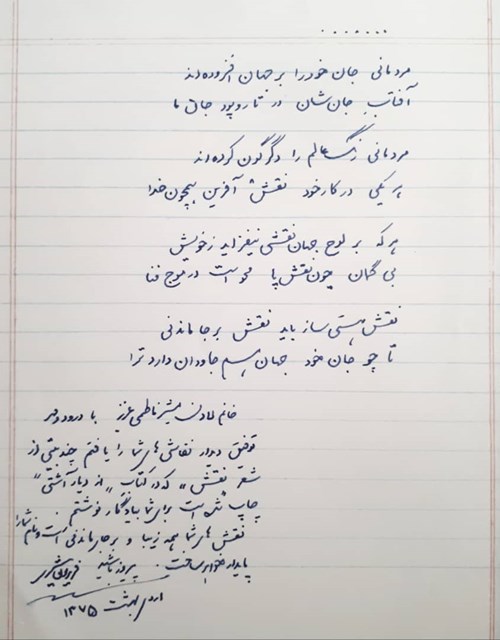 .......
مردمانی جان خود را بر جهان افزوده‌اند
آفتاب جان‌شان در تار و پود جان ما
مردمانی رنگ عالم را دگرگون کرده‌اند
هر یکی در کار خود نقش آفرین همچون خدا
هر که بر لوح جهان نقشی نیفزاید ز خویش
بی گمان چون نقش پا محو است در موج فنا
نقش هستی ساز باید نقش بر جا ماندنی
تا چو جان خود جهان هم جاودان دارد ترا
خانم مبشر ناطقی عزیز با درود و مهر
توفیق دیدار نقاشی‌های شما را یافتم چند بیتی از
شعر «نقش» که در کتاب «از دیار آشتی»
چاپ شده است برای شما به یادگار نوشتم.
نقش‌های شما همه زیبا و بر جا ماندنی است و نام شما را
پایدار خواهد ساخت. پیروز باشید فریدون مشیری
اردیبهشت ۱۳۷۵